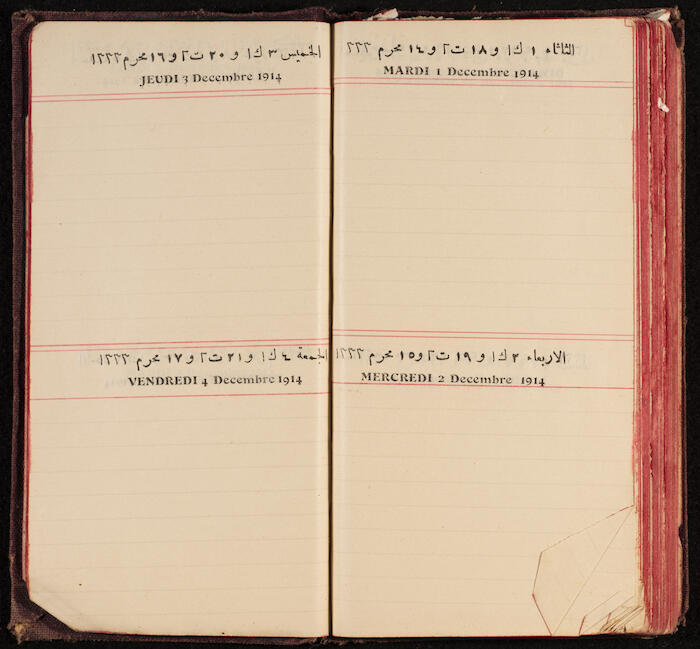 الثلثاء ١ ك١ و ١٨ ت٢ و ١٤ محرم ٣٣٣
MARDI 1 Decembre 1914
الاربعاء ٢ ك١ و ١٩ ت٢ و ١٥ محرم ١٣٣٣
MERCREDI 2 Decembre 1914
الخميس ٣ ك١ و ٢٠ ت٢ و ١٦ محرم ١٣٣٣
JEUDI 3 Decembre 1914
الجمعة ٤ ك١ و ٢١ ت٢ و ١٧ محرم ١٣٣٣
VENDREDI 4 Decembre 1914